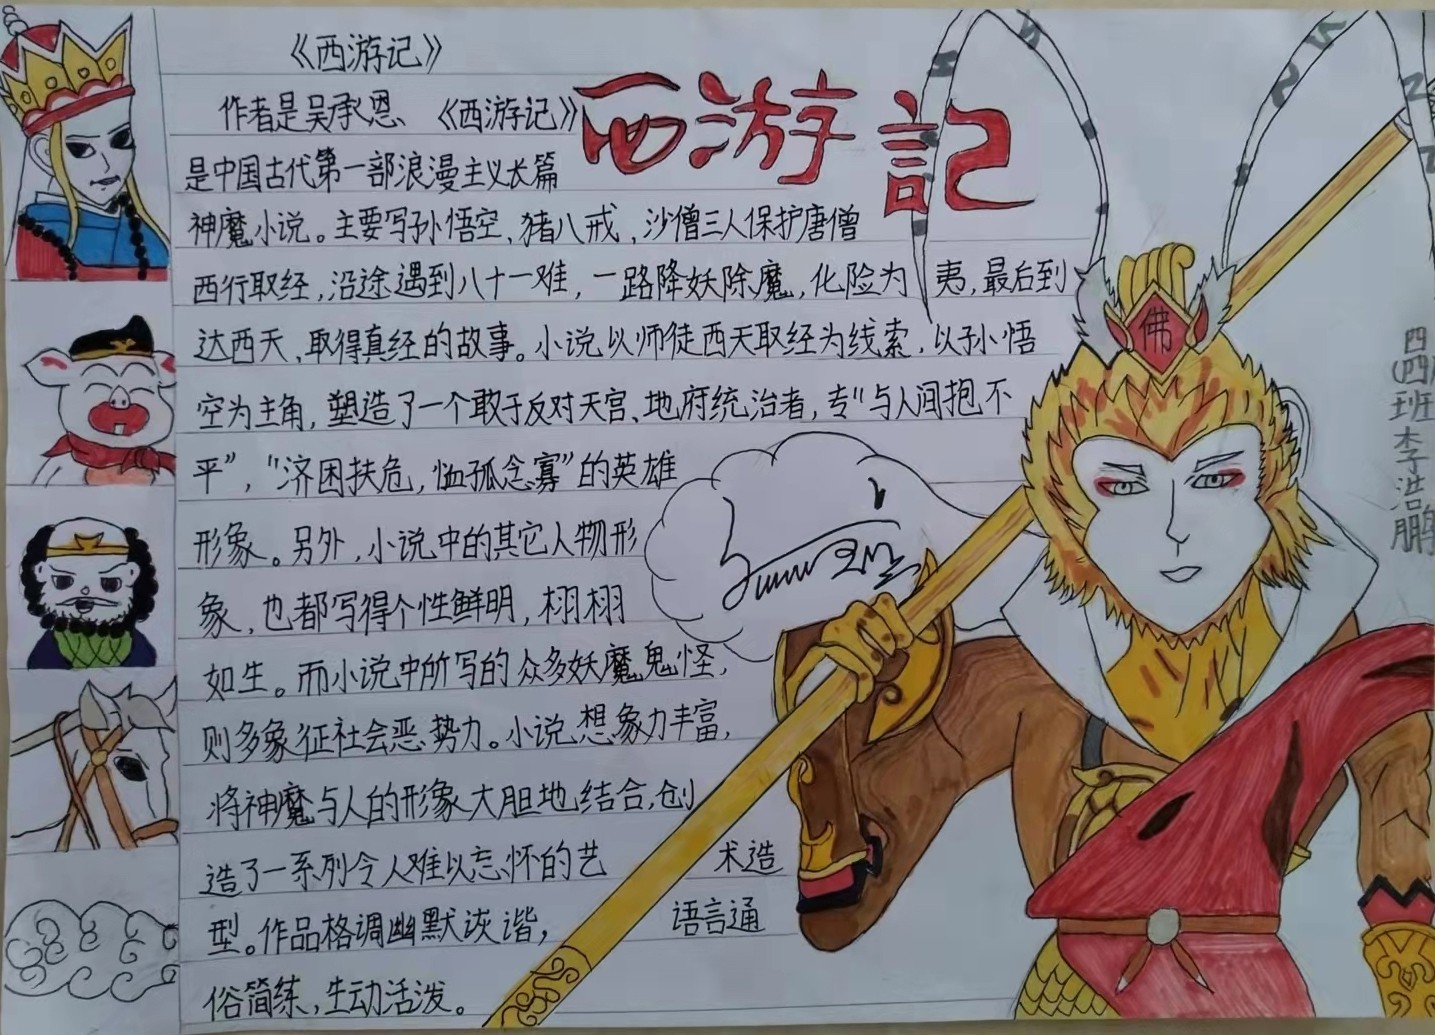 《西游记》
西游記
作者是吴承恩、《西游记》
是中国古代第一部浪漫主义长篇
神魔小说。主要写孙悟空、猪八戒、沙僧三人保护唐僧
西行取经,沿途遇到八十一难,一路降妖除魔,化险为夷,最后到
达西天、取得真经的故事。小说以师徒西天取经为线索,以孙悟
空为主角,塑造了一个敢于反对天宫、地府统治者,专"与人间抱不
平","济困扶危,恤孤念寡"的英雄
形象。另外,小说中的其它人物形
象,也都写得个性鲜明,栩栩
如生。而小说中所写的众多妖魔鬼怪,
则多象征社会恶势力。小说想象力丰富,
将神魔与人的形象大胆地结合,创
造了一系列令人难以忘怀的艺术造
型。作品格调幽默诙谐,语言通
俗简练,生动活泼。
佛
四(四)班李浩鹏